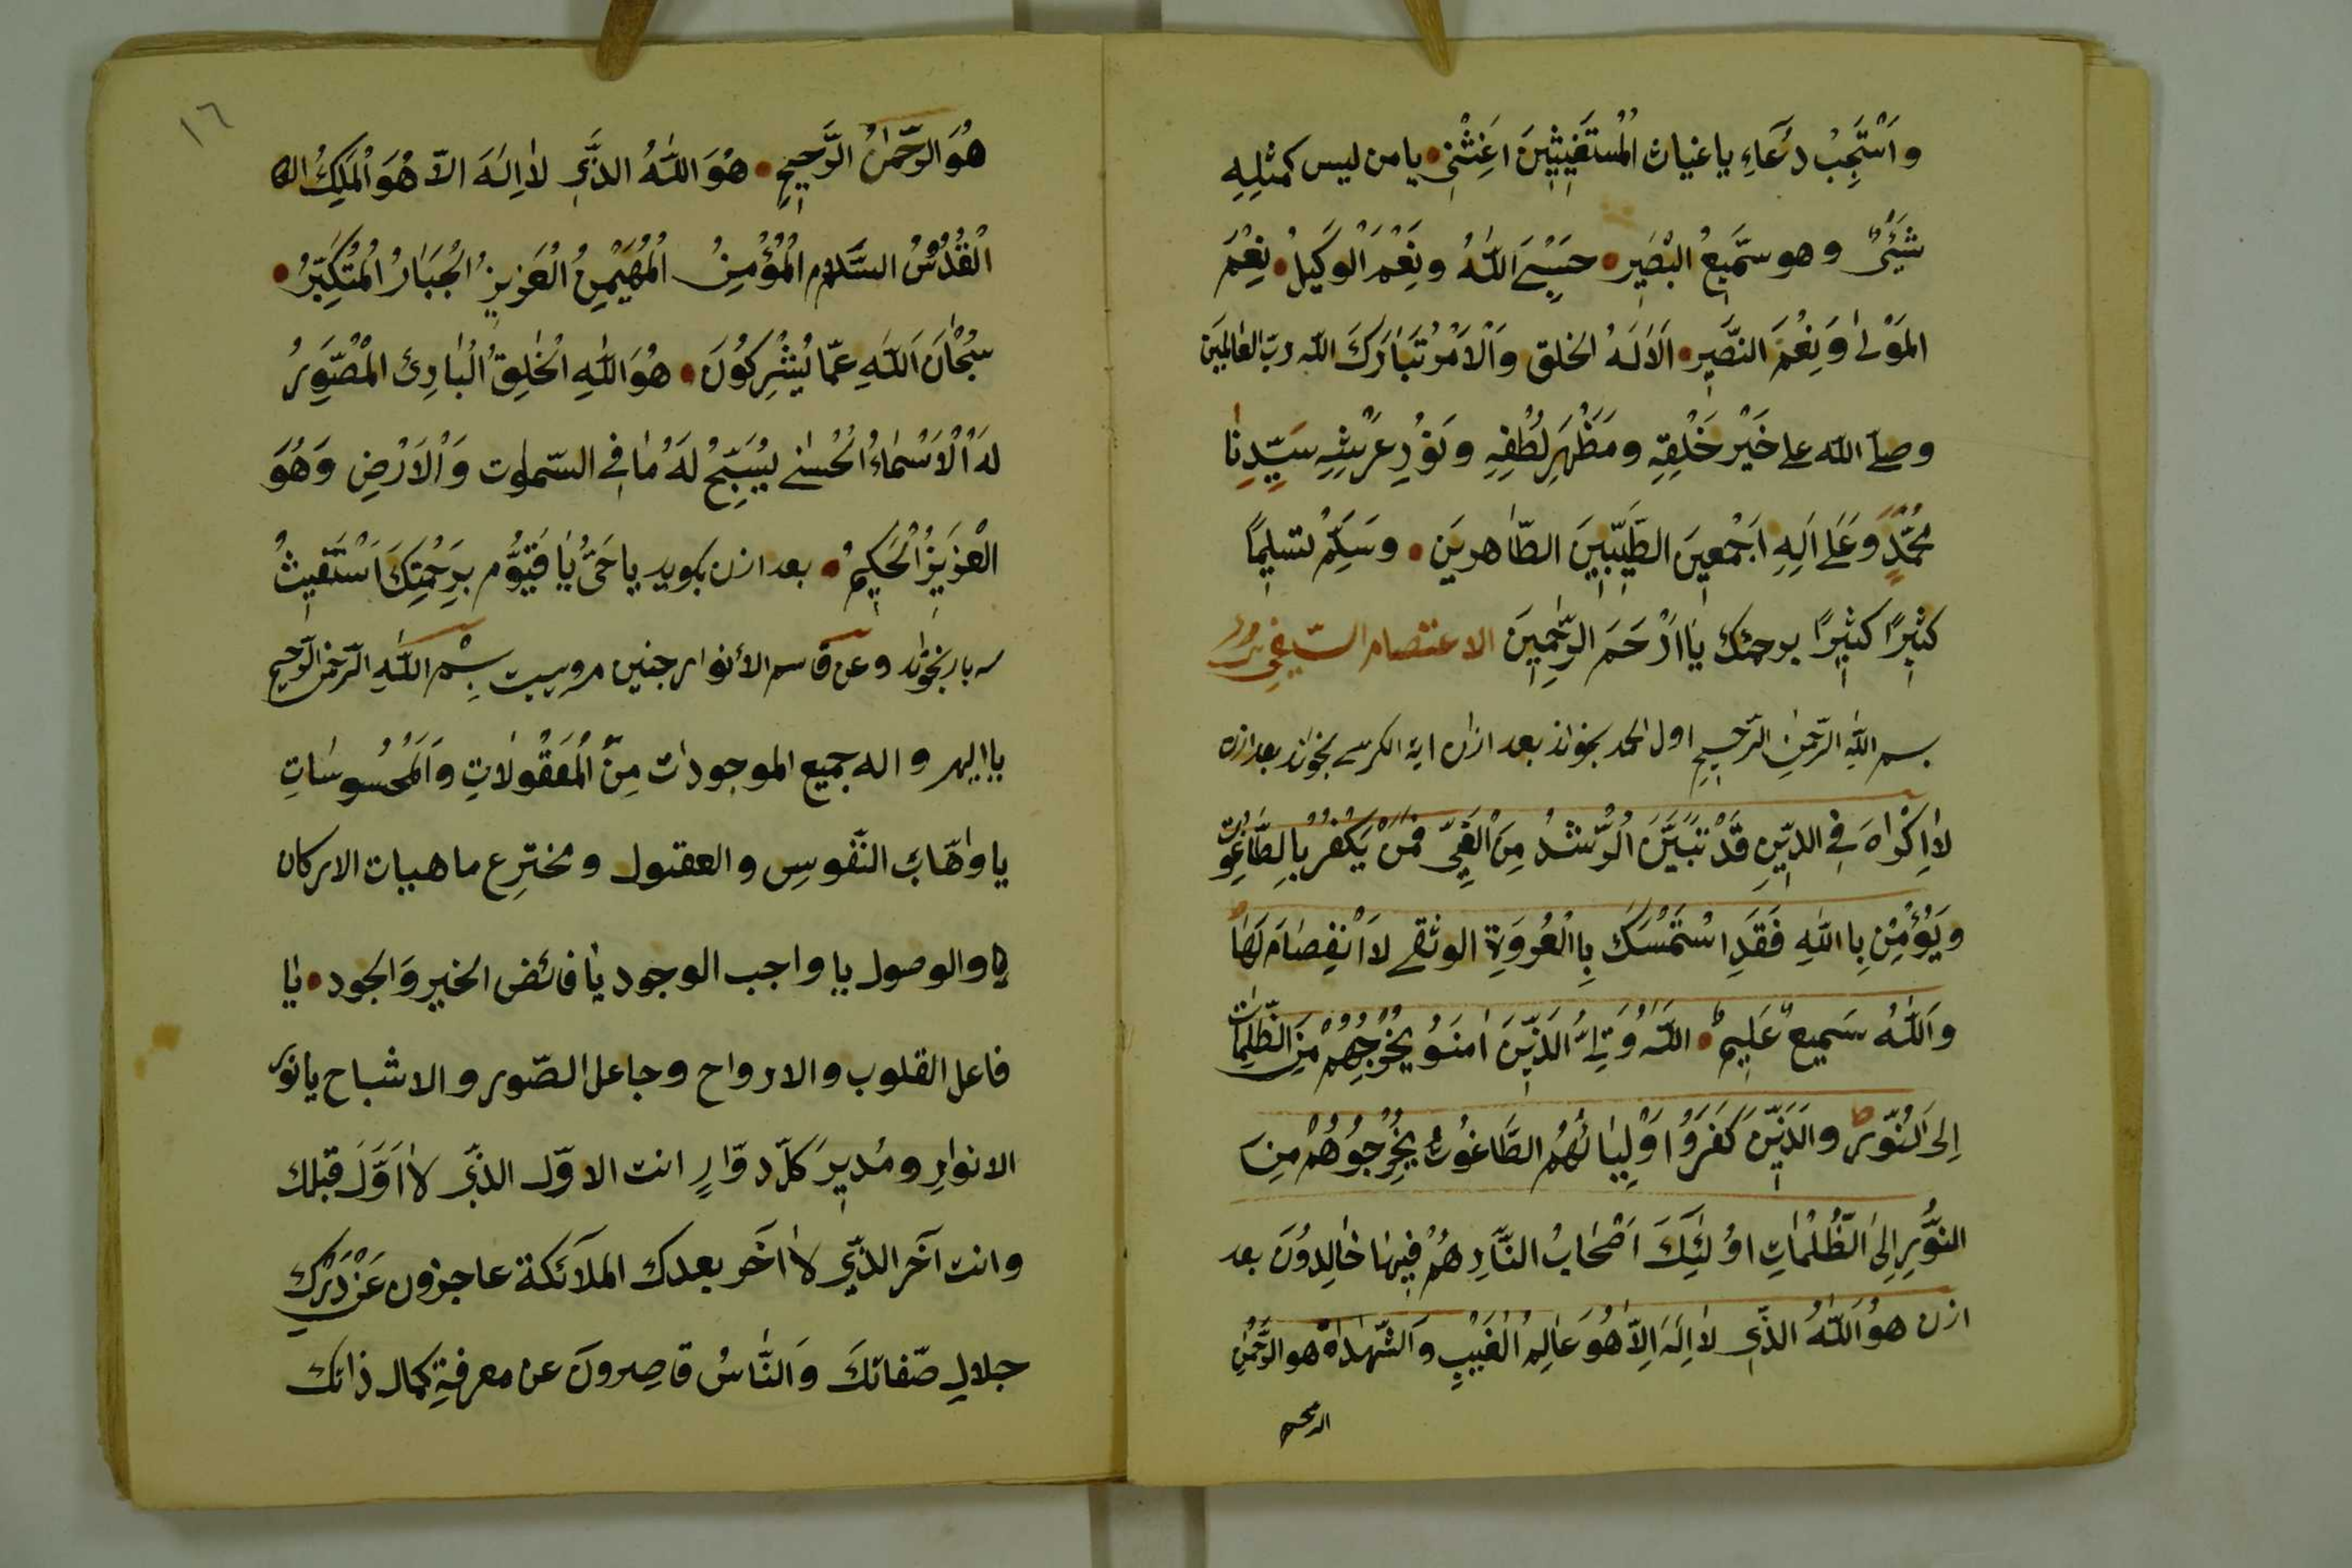 وَاَسْتَجِبْ دُعَآءِ يا غياث الْمُسْتَغِيثِينَ اَغِثْنِی يا من ليس كمثلِهِ
شَيْئٌ وهو سَّمِيعُ الْبَصِيرِ حَسْبِیَ اللّٰهُ وَنِعْمَ الْوَكِيلُ نِعْمَ
الْمَوْلٰى وَنِعْمَ النَّصِيرِ اَلَالَهُ الخلق وَالْاَمْرُ تَبَارَكَ اللّه ربّ العٰالمِينَ
وصلّى اللّه على خَيْرِ خَلْقِهِ ومَظْهَرِ لُطْفِهِ ونُورِ عَرْشِهِ سَيِّدِنٰا
مُحَمَّدٍ وَعَلى آلِهِ اَجْمَعِينَ الطَّيِّبِينَ الطّاهرينَ وسَلِّمْ تسليمًا
كثيرًا كثيرًا برحمتك يٰا اَرْحَمَ الرّٰحِمِينَ الاعتصام السّيفى
بسم اللّهِ الرّحمٰنِ الرّحيمِ اول الحمد بخواند بعد ازان اية الكرسى بخواند بعد ازن
لٰا اِكْرٰاهَ فِى الدِّينِ قَدْ تَبَيَّنَ الرُّشْدُ مِنَ الْغَيِّ فَمَنْ يَكْفُرْ بِالطّٰاغُوتِ
وَيُؤْمِنْ بِاللّٰهِ فَقَدِ اسْتَمْسَكَ بِاالْعُرْوَةِ الوثقى لاَ انْفِصٰامَ لَهٰا
وَاللّٰهُ سَمِيعٌ عَلِيمٌ اللّٰهُ وَلِىُّ الَّذِينَ اٰمَنُو يُخْرِجُهُمْ مِنَ الظُّلِمٰاتِ
اِلَى النُّورِ وَالَّذِينَ كَفَرُوا اَوْلِيٰائُهُمُ الطَّاغُوتُ يُخْرِجُوهُمْ مِنَ
النُّورِ اِلىَ الظُّلُمٰاتِ اوُلٰئِكَ اَصْحٰابُ النَّارِ هُمْ فِيهٰا خٰالِدُونَ بعد
ازن هُوَ اللّٰهُ الذِّى لٰا اِلَهَ اِلاّٰ هُوَ عٰالِمُ الْغَيْبِ وَالشّهٰدَاة هو الرَّحْمٰنِ
الرحيم
١٦
هُوَ الرَّحْمٰنُ الرَّحِيمِ هُوَ اللّٰهُ الذَّىِ لٰا اِلٰهَ الاّ هُوَ الْمَلِكُ
الْقُدُّوسُ السَّلام الْمُؤْمِنُ الْمُهَيْمِنُ الْعَزِيزُ الْجَبَارُ الْمُتَكَبِّرُ
سُبْحٰانَ اَللّٰهِ عَمّا يُشْرِكُونَ هُوَ اللّٰهِ الْخٰالِقُ الْبٰارِئ الْمُصَّوِرُ
لَهُ الْاَسْمٰاءُ الْحُسْنٰى يُسَبِّحُ لَهُ مٰا فِى السّمٰوٰت وَالْاَرْضِ وَهُوَ
الْعَزِيزُ الْحَكِيمُ بعد ازن بكويد يا حَىُّ يٰا قَيُّوم بِرَحْمَتِكَ اَسْتَغِيثُ
سه بار بخواند وعن قاسم الأنوار چنين مرويست بِسْمِ اللّٰهِ الرّحمٰن الرّحيم
يا الهى واله جميع الموجودات مِنَ الْمَعْقُولاٰتِ وَالْمَحْسُوسٰاتِ
يا وٰاهّابَ النّفوسِ والعقول ومخترع ماهيات الاركان
والوصول يا واجب الوجود يٰا فائض الخير وَالجود يٰا
فاعل القلوب والارواح وجاعل الصّور والاشباح يا نور
الانوارِ ومُدِيرَ كلّ دوّارٍ انت الاوّل الذّى لاٰ اَوَّلَ قبلك
وانت آخَر الذّى لاٰ اخَر بعدك الملآئكة عاجزون عَنْ دَرْكِ
جلالِ صّفاتكَ وَالنّٰاسُ قاصِرونَ عن معرفةِ كمال ذاتك